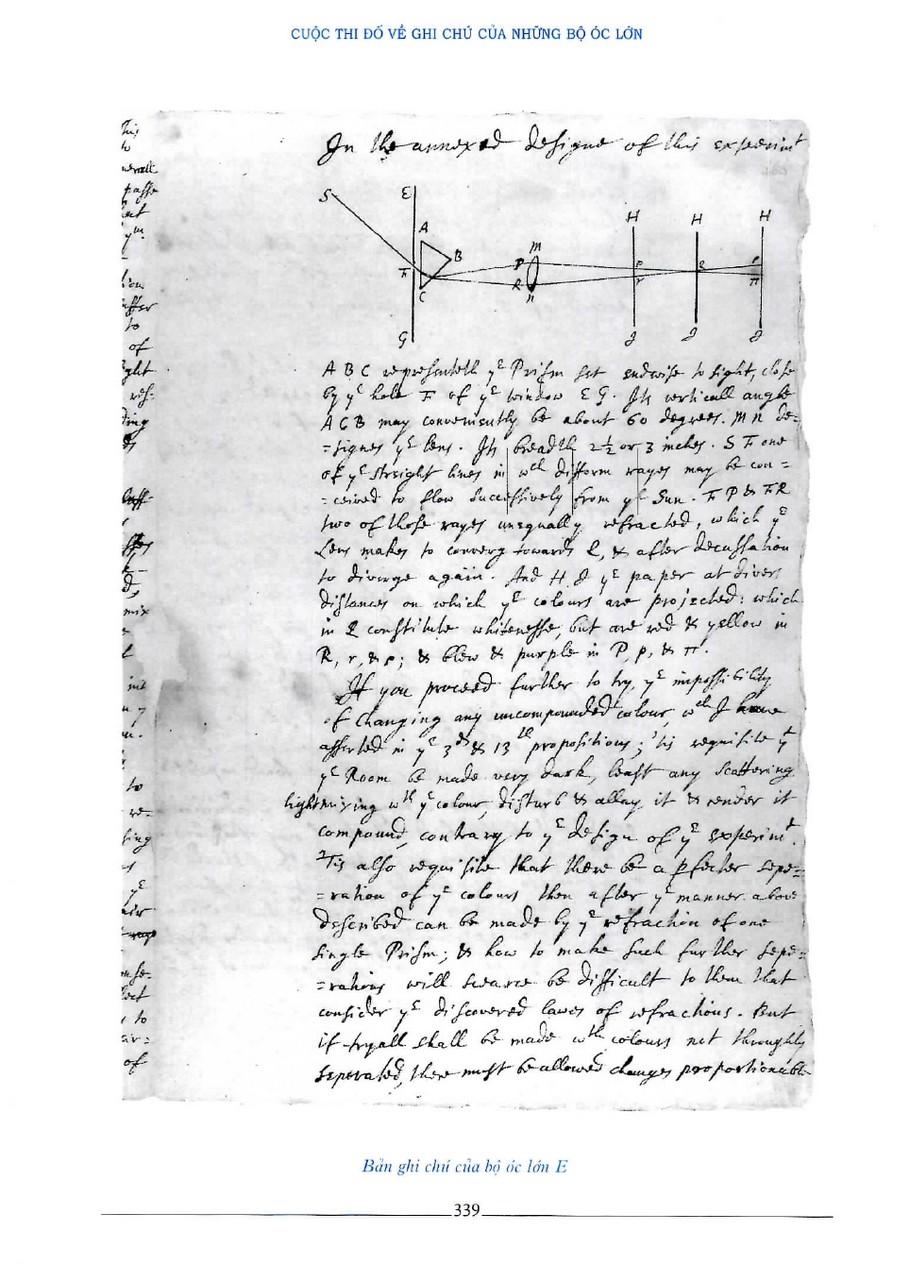 CUỘC THI ĐỐ VỀ GHI CHÚ CỦA NHỮNG BỘ ÓC LỚN
In the annexed designe of this experimt
S E H H H
A B M
F P p Q ρ
C R r π
n
G J J J
A B C representeth ye Prism set endwise to sight, close
by ye hole F of ye window E G. Its verticall angle
A C B may conveniently be about 60 degrees. M N de=
=signes ye lens. Its breadth 2½ or 3 inches. S F one
of ye streight lines in wch difform rayes may be con=
=ceived to flow successively from ye Sun. F P & F R
two of those rayes unequally refracted, which ye
Lens makes to converg towards Q, & after decussation
to diverge again. And H J ye paper at divers
distances on which ye colours are projected: which
in Q constitute whitenesse, but are red & yellow in
R, r, & ρ; & blew & purple in P, p, & π.
If you proceed further to try ye impossibility
of changing any uncompounded colour, wch I have
asserted in ye 3d & 13th propositions; 'tis requisite yt
ye Room be made very dark, least any scattering
light mixing wth ye colour, disturb & allay it & render it
compound, contrary to ye design of ye experimt.
'Tis also requisite that there be a pfecter sepe=
=ration of ye colours then after ye manner above
described can be made by ye refraction of one
single Prism; & how to make such further sepe=
=rations will scarce be difficult to them that
consider ye discovered lawes of refractions. But
if tryall shall be made wth colours not throughly
seperated, there must be allowed changes proportionable
Bản ghi chú của bộ óc lớn E
339